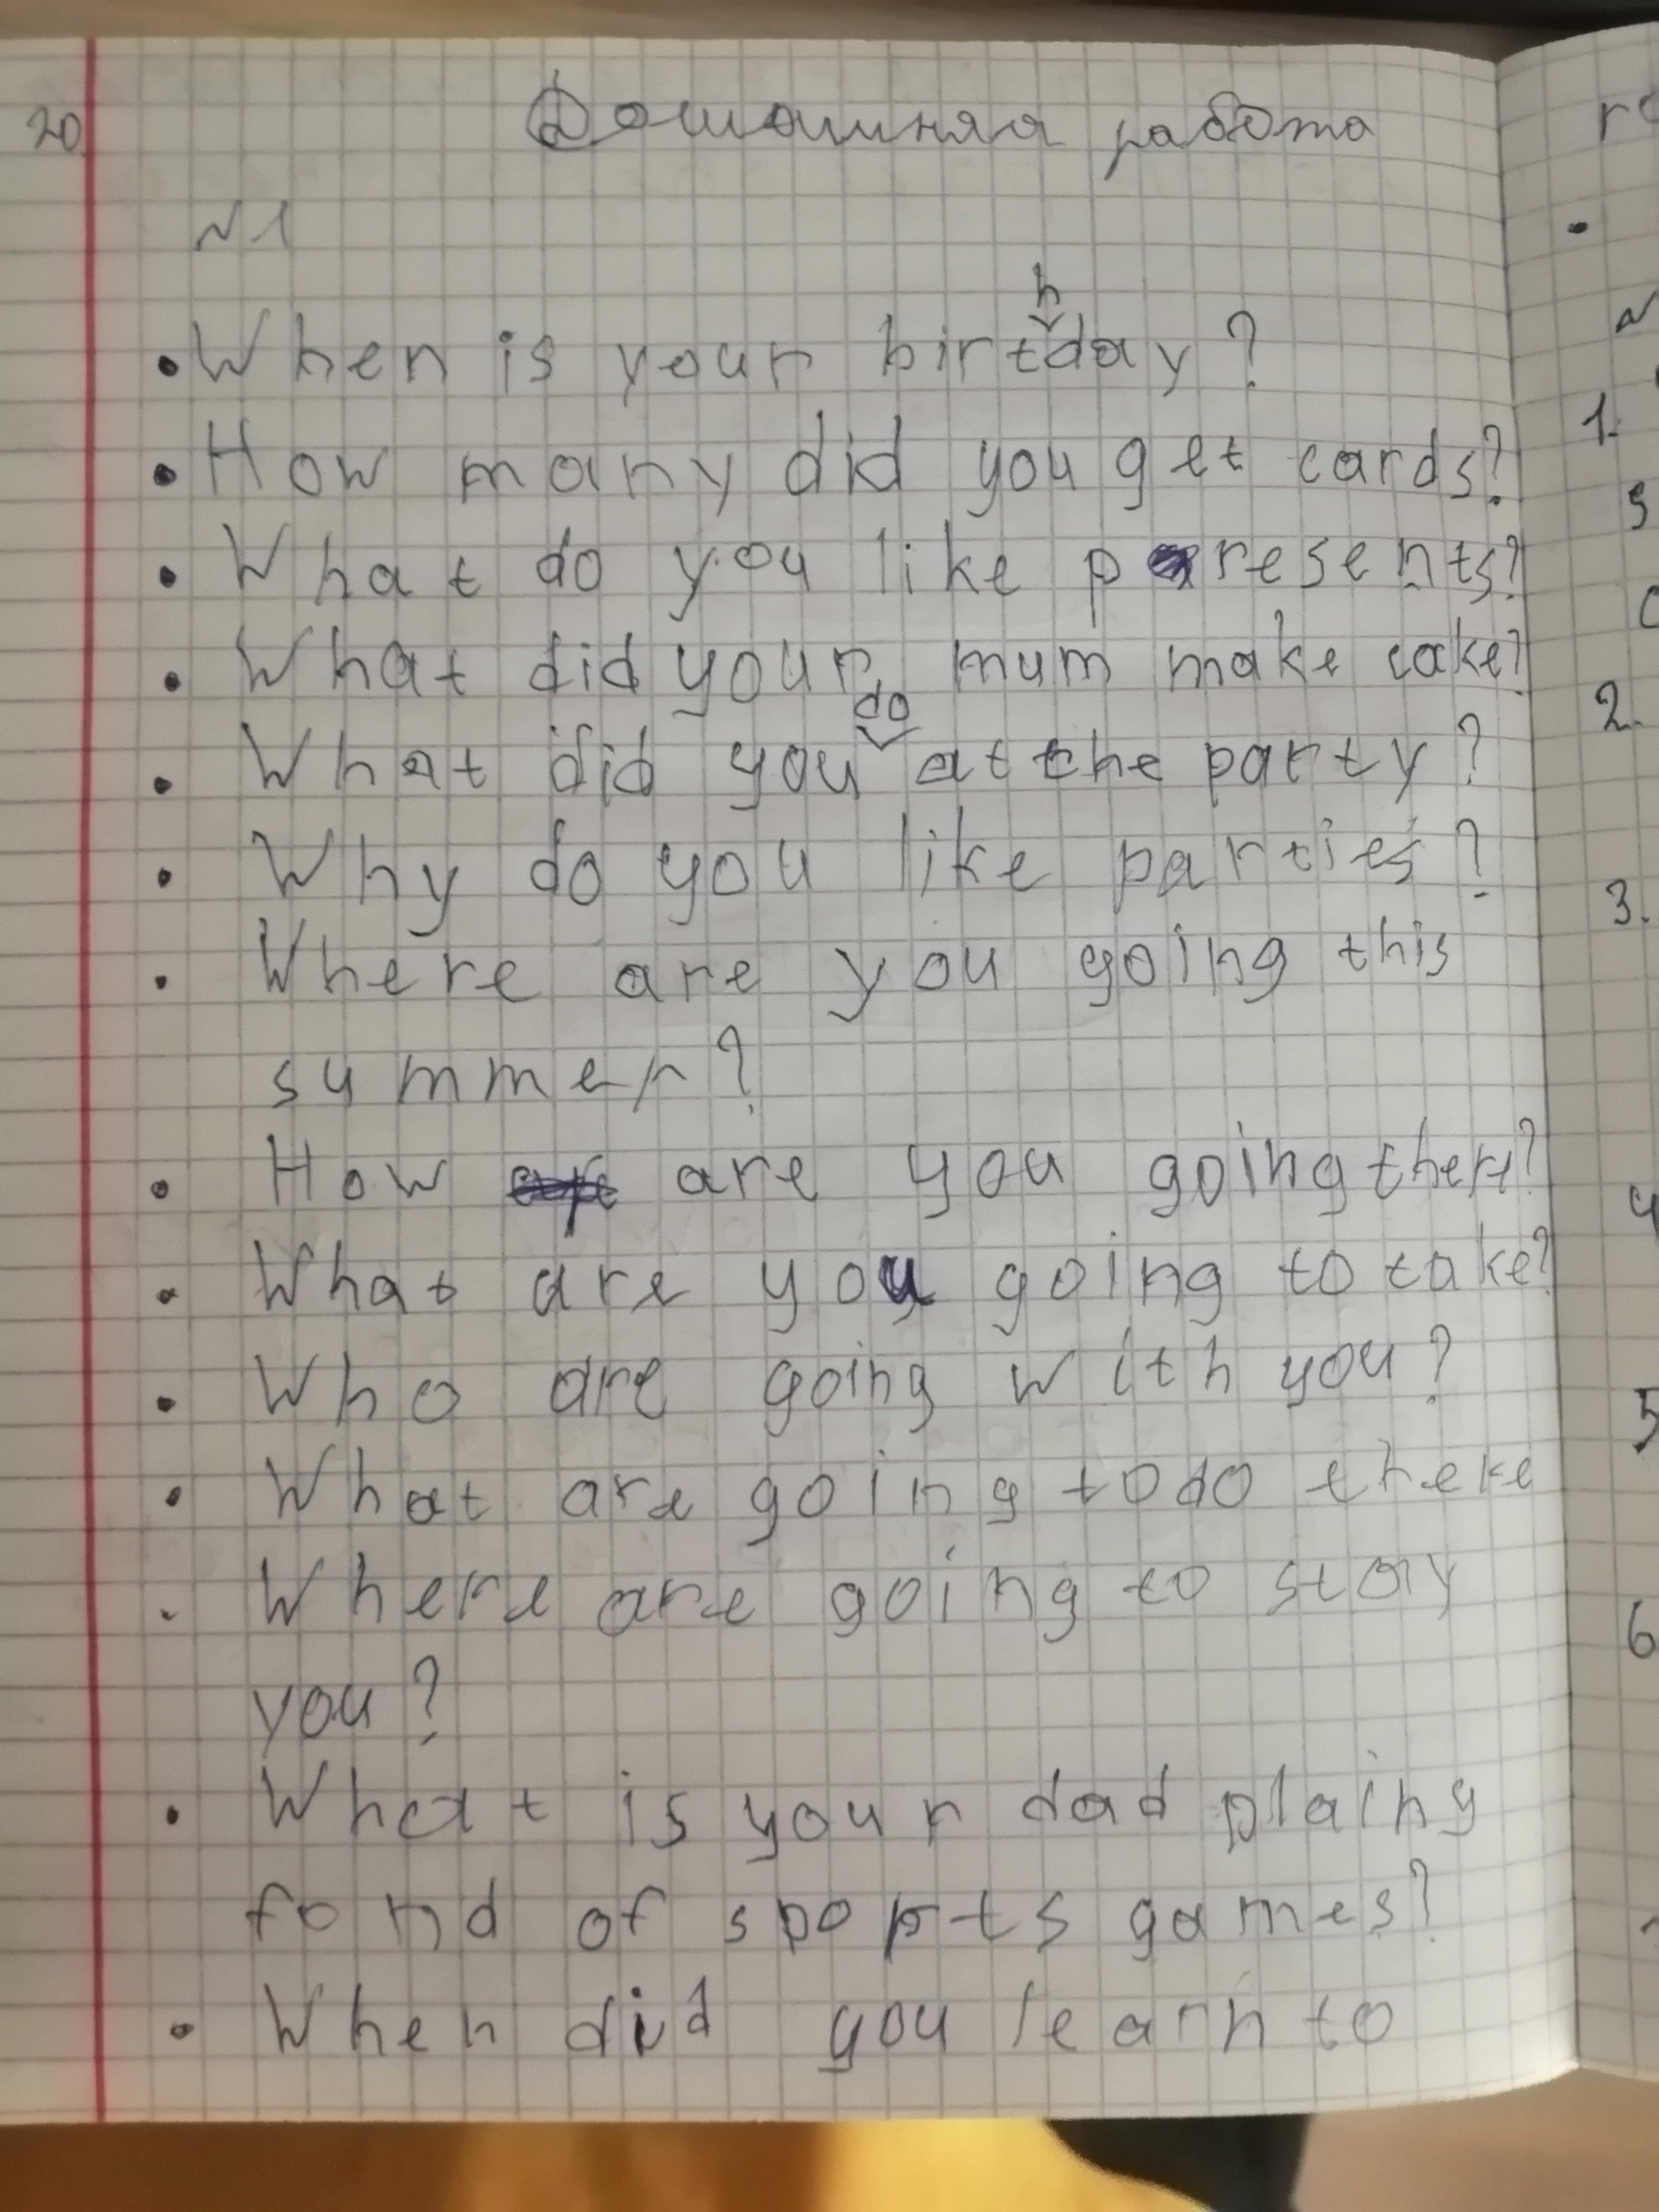 20
Домашняя работа
№1
• When is your birthday?
• How many did you get cards?
• What do you like presents?
• What did your mum make cake?
• What did you do at the party?
• Why do you like parties?
• Where are you going this
summer?
• How are you going there?
• What are you going to take?
• Who are going with you?
• What are going to do there
• Where are going to stay
you?
• What is your dad plaing
fond of sports games?
• When did you learn to
1.
2.
3.
4
5
6